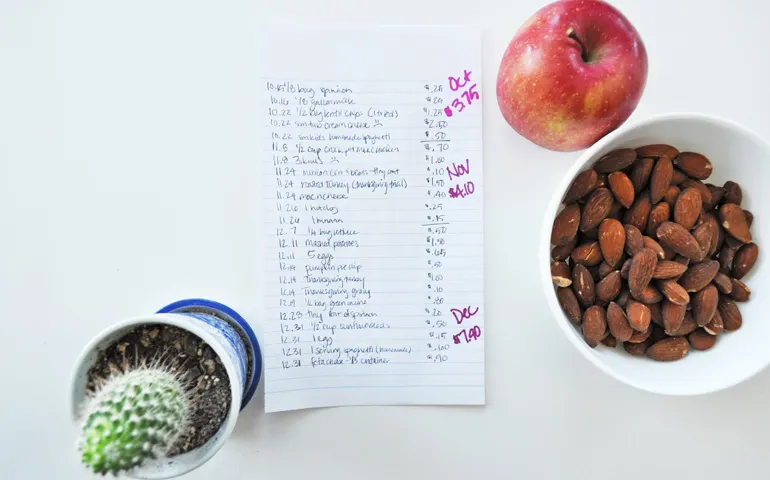 10.15 1/8 bag spinach $.25 Oct
10.16 1/8 gallon milk $.20 $3.75
10.22 1/2 bag lentil chips (I tried) $1.25
10.22 cream cheese $2.00
10.22 homemade spaghetti $.50
11.8 1/2 cup chicken $.70
11.8 3 $1.00 Nov
11.24 corn & beans - tiny $.10 $4.10
11.24 roasted turkey (thanksgiving trial) $1.50
11.24 mac n cheese $.40
11.26 1 hotdog $.25
11.26 1 banana $.15
12.7 1/4 bag lettuce $.50
12.11 mashed potatoes $1.50
12.11 5 eggs $.65
12.14 pumpkin pie $.50
12.14 Thanksgiving turkey $.60
12.14 Thanksgiving gravy $.10
12.19 1/2 bag $.80
12.23 tiny bit of spinach $.20 Dec
12.31 1/2 cup sunflower seeds $.50 $7.90
12.31 1 egg $.15
12.31 1 serving spaghetti (homemade) $.60
12.31 feta cheese - 1/3 container $.90